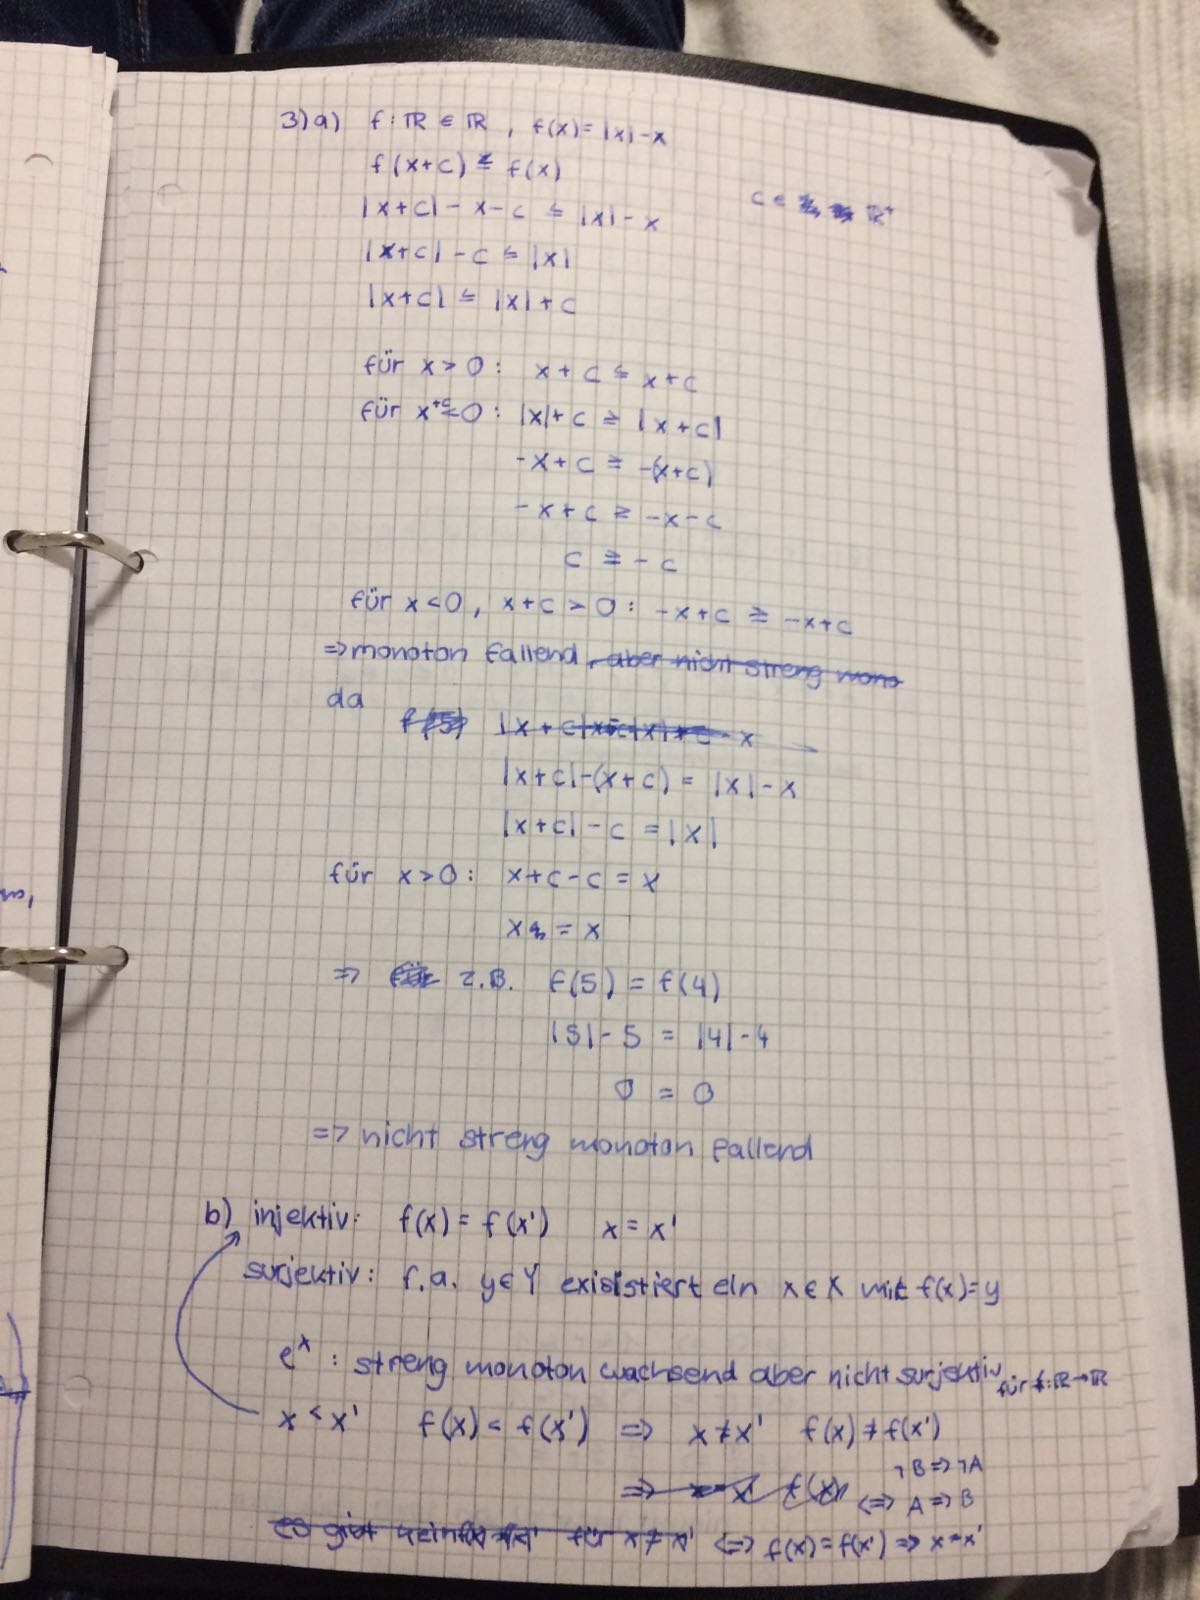 3)a) f: ℝ ∈ ℝ, f(x)=|x|-x
f(x+c) ≤ f(x)
|x+c| - x - c ≤ |x| - x c ∈ ℝ⁺
|x+c| - c ≤ |x|
|x+c| ≤ |x| + c
für x > 0: x + c ≤ x + c
für x+c<0: |x| + c ≥ |x+c|
-x + c ≥ -(x+c)
-x + c ≥ -x - c
c ≥ -c
für x < 0, x+c > 0: -x+c ≥ -x+c
⇒ monoton fallend, aber nicht streng mono
da
f(5) |x+c|
|x+c|-(x+c) = |x| - x
|x+c| - c = |x|
für x>0: x+c-c = x
x = x
⇒ für z.B. f(5) = f(4)
|5| - 5 = |4| - 4
0 = 0
⇒ nicht streng monoton fallend
b) injektiv: f(x) = f(x') x = x'
surjektiv: f.a. y∈Y exisistiert ein x∈X mit f(x)=y
eˣ: streng monoton wachsend aber nicht surjektiv für f:ℝ→ℝ
x < x' f(x) < f(x') ⇒ x ≠ x' f(x) ≠ f(x')
¬B ⇒ ¬A
⇒ f(x) ⇔ A ⇒ B
es gibt kein für x ≠ x' ⇔ f(x)=f(x') ⇒ x=x'